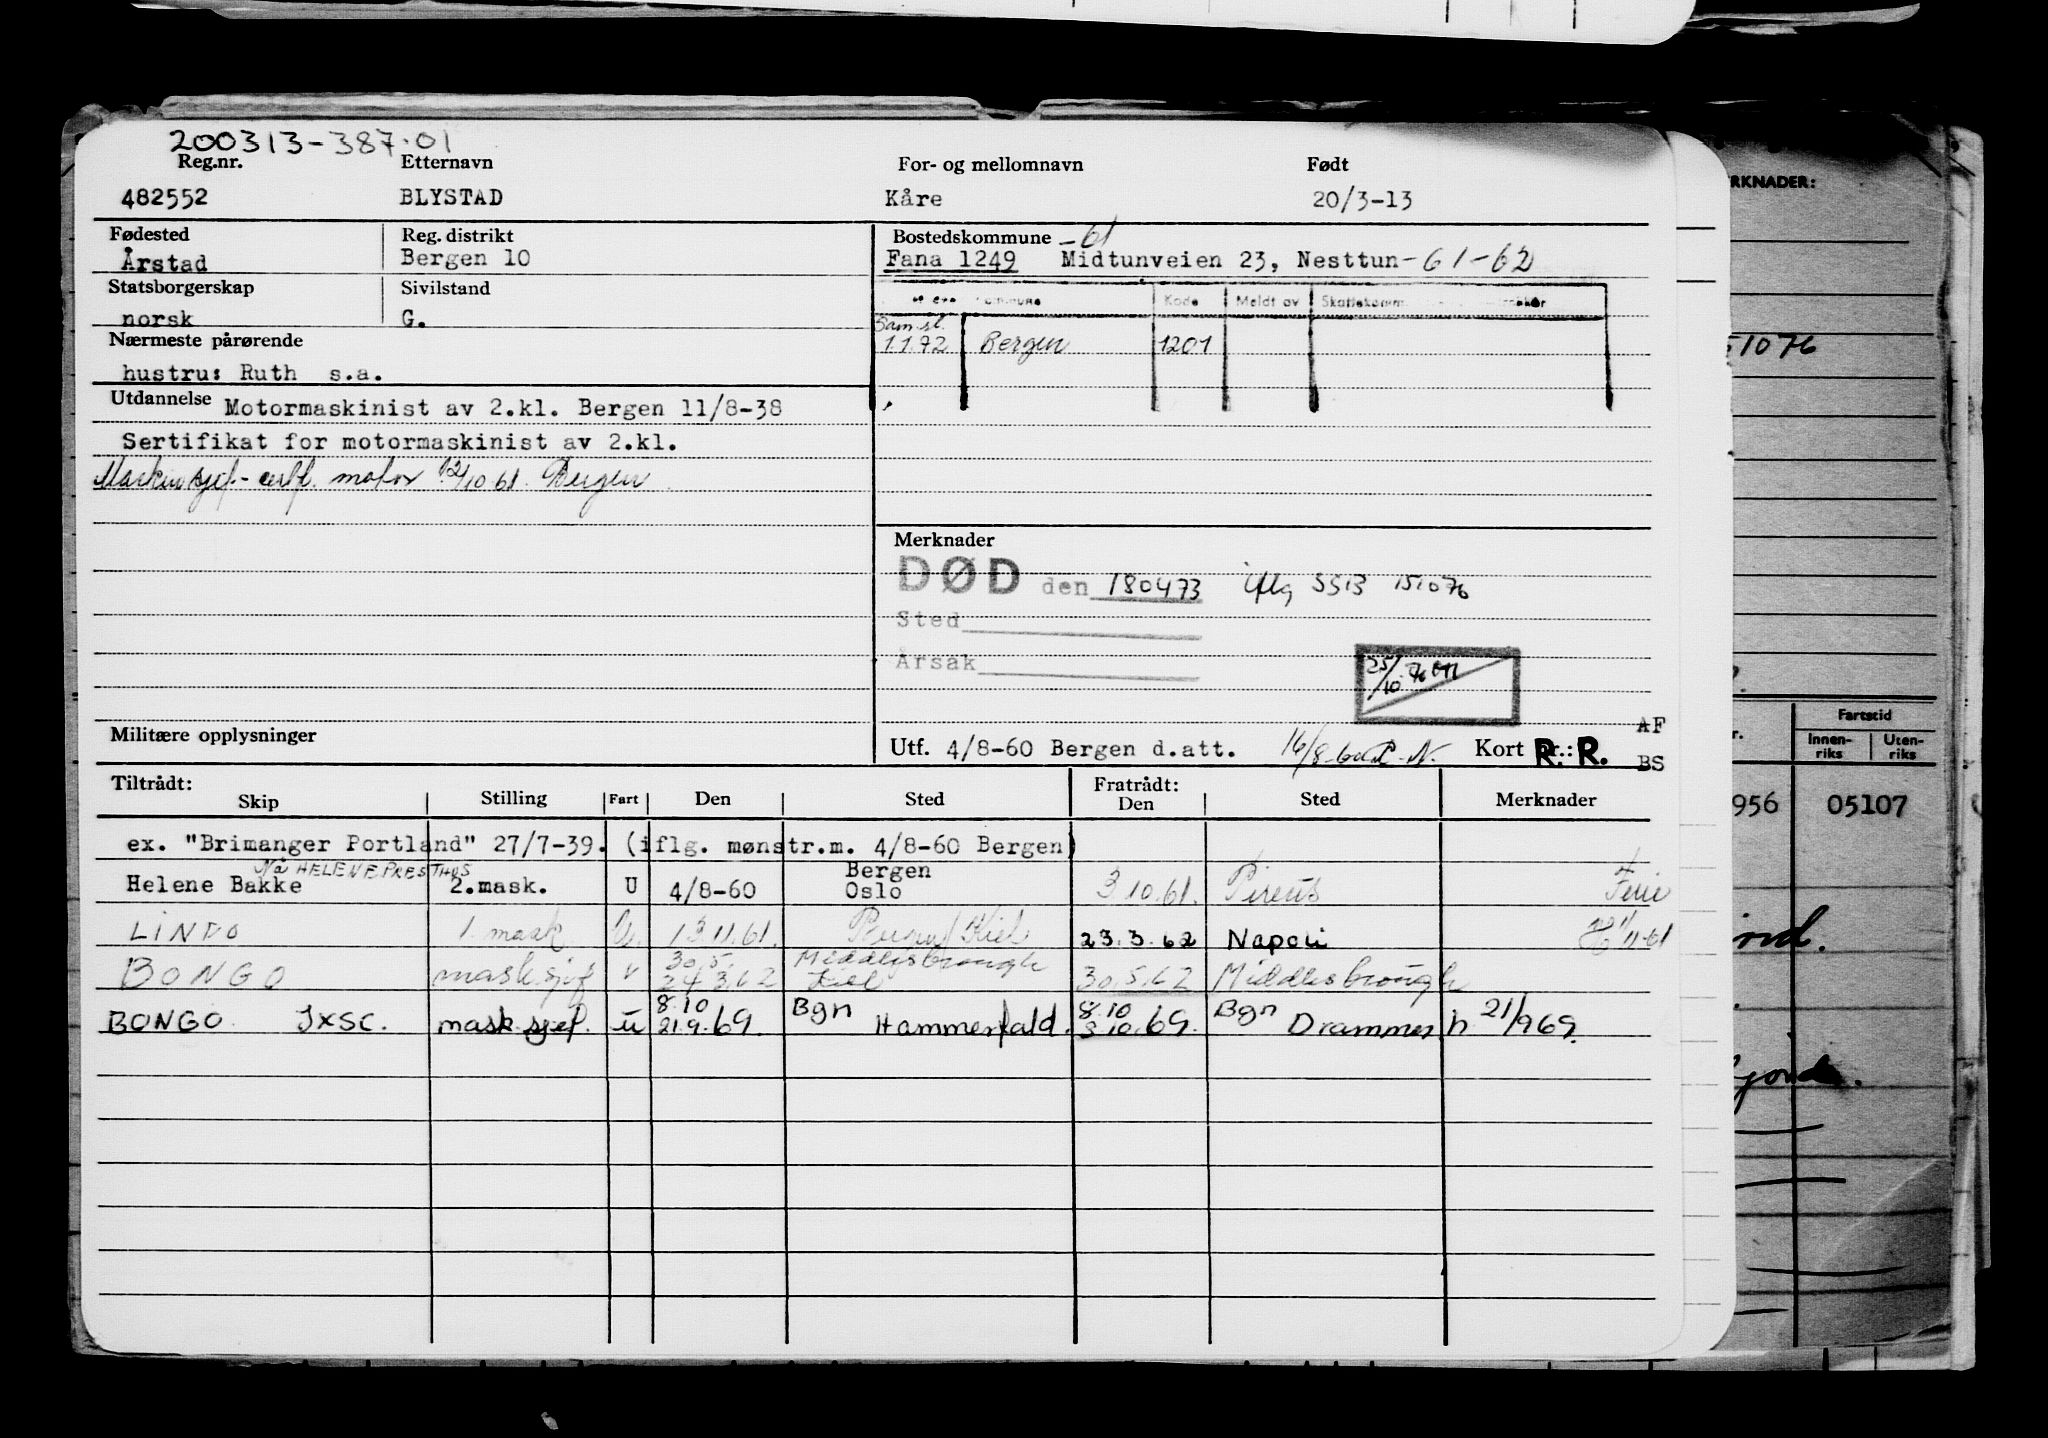 200313-387.01
Reg.nr. Etternavn For- og mellomnavn Født
482552 BLYSTAD Kåre 20/3-13
Fødested Reg. distrikt Bostedskommune -61
Årstad Bergen 10 Fana 1249 Midtunveien 23, Nesttun -61-62
Statsborgerskap Sivilstand
norsk G.
Kode Meldt av
Sam.sl.
1.1.72 Bergen 1201
Nærmeste pårørende
hustru: Ruth s.a.
Utdannelse Motormaskinist av 2.kl. Bergen 11/8-38
Sertifikat for motormaskinist av 2.kl.
Maskinsjef-certf. motor 12/10 61. Bergen
Merknader
DØD den 180473 iflg SSB 151076
Sted
Årsak
25/10-76
Militære opplysninger
Utf. 4/8-60 Bergen d.att. 16/8-60 Kort nr.: R.R.
AF
BS
Tiltrådt: Fratrådt:
Skip Stilling Fart Den Sted Den Sted Merknader
ex. "Brimanger Portland" 27/7-39. (iflg. mønstr.m. 4/8-60 Bergen)
Nå HELENE PRESTHUS Bergen
Helene Bakke 2.mask. U 4/8-60 Oslo 3.10.61. Pireus Ferie
LINDO 1. mask U. 13.11.61. Bergen/Kiel 23.3.62 Napoli 1/11-61
30.5. Middlesbrough
BONGO mask.sjef v 24.3.62 Kiel 30.5.62 Middlesbrough
8.10 Bgn 8.10 Bgn
BONGO JXSC. mask.sjef. u 21.9.69. Hammerfald. 3.10.69. Drammen h 21/969.
RKNADER:
51076
Fartstid
r. Innenriks Utenriks
956 05107